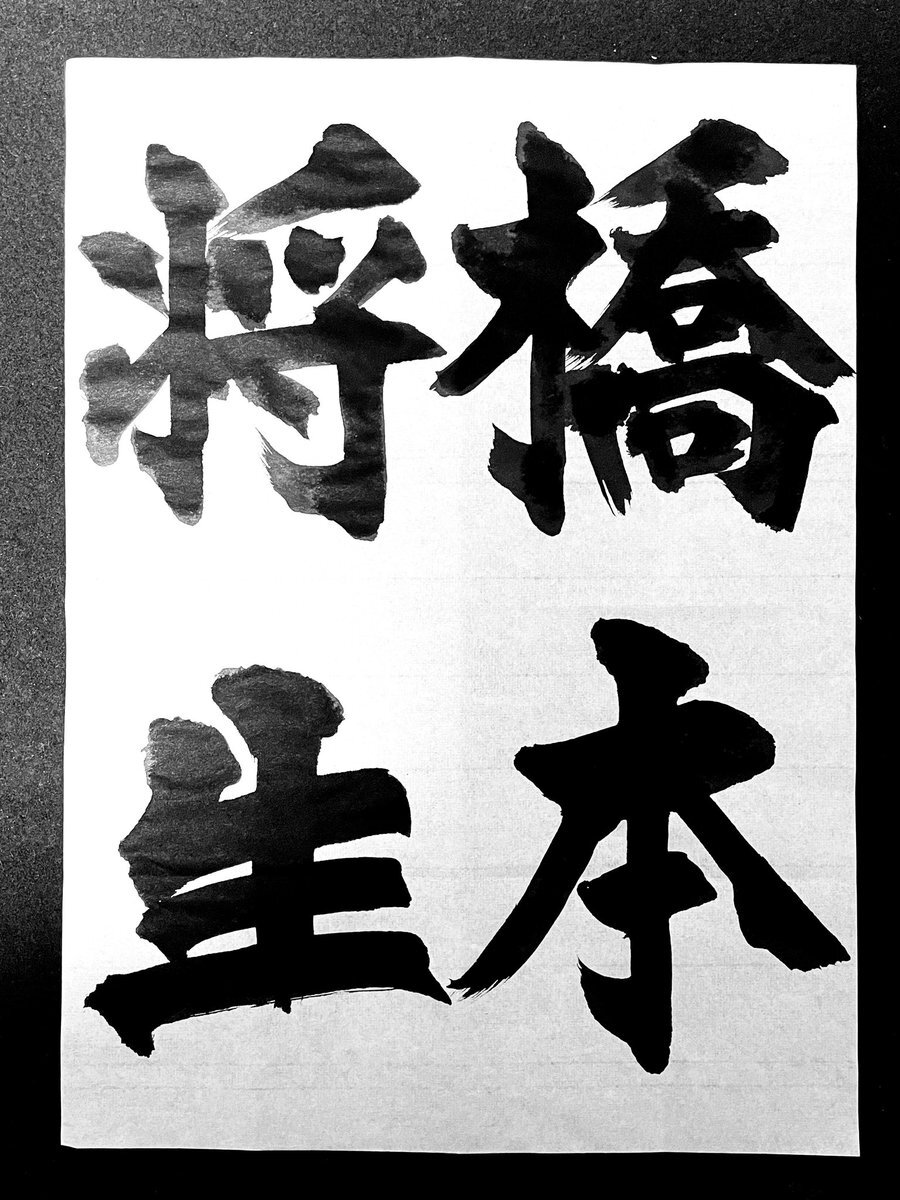 橋本
将生